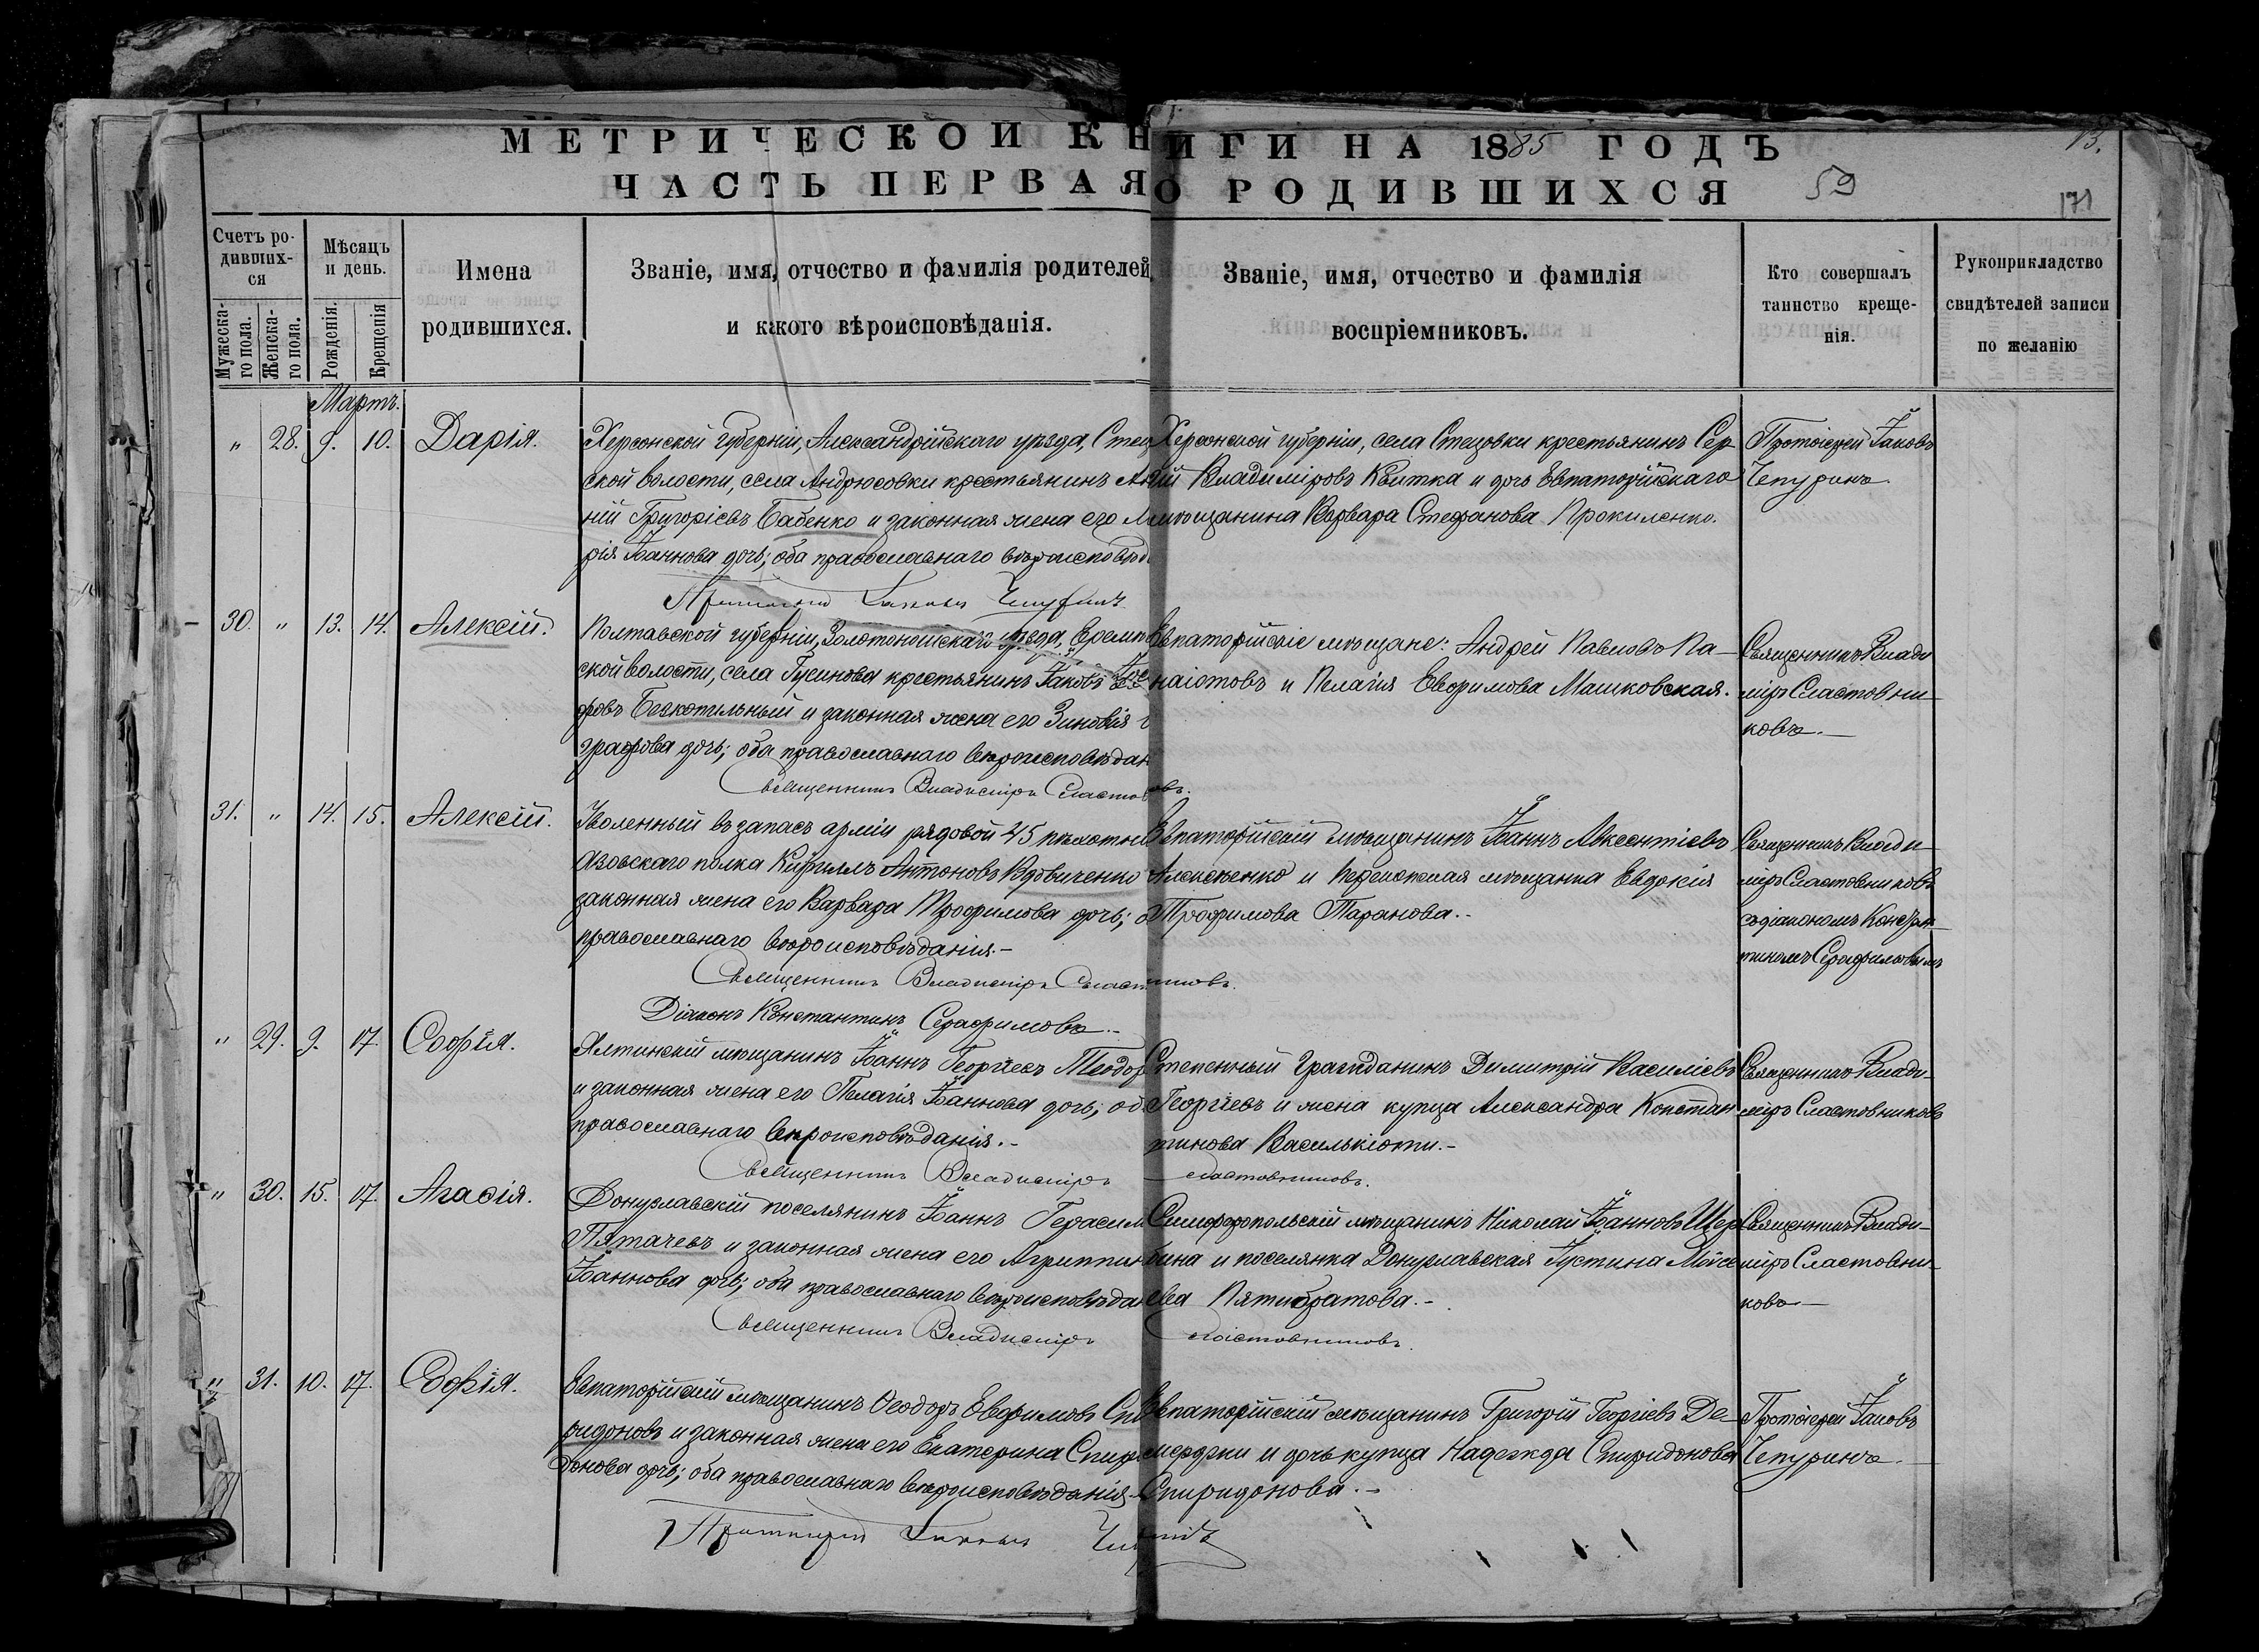 МЕТРИЧЕСКОЙ КНИГИ НА 1885 ГОДЪ
13.
ЧАСТЬ ПЕРВАЯ О РОДИВШИХСЯ
59
171
Счетъ ро-
дивших-
ся
Мужеска-
го пола.
Женска-
го пола.
Мѣсяцъ
и день.
Рожденія.
Крещенія
Имена
родившихся.
Званіе, имя, отчество и фамилія родителей,
и какого вѣроисповѣданія.
Званіе, имя, отчество и фамилія
воспріемниковъ.
Кто совершалъ
таинство креще-
нія.
Рукоприкладство
свидѣтелей записи
по желанію
Мартъ.
" 28. 9. 10. Дарія.
Херсонской губерніи, Александрійскаго уѣзда, Стец
ской волости, села Андрюсовки крестьянинъ
ній Григорієвъ Бабенко и законная жена его
рія Іоаннова дочь; оба православнаго вѣроисповѣд
Протоіерей Іаковъ Чепуринъ
Херсонской губерніи, села Стецовки крестьянинъ Сер-
гій Владиміровъ Квитка и дочь Евпаторійскаго
мѣщанина Варвара Стефанова Прокиленко.
Протоіерей Іаковъ
Чепуринъ.
30. " 13. 14. Алексій.
Полтавской губерніи, Золотоношскаго уѣзда, Еремѣ
ской волости, села Гусинова крестьянинъ Іаковъ
фовъ Безкотильный и законная жена его Зиновія
графова дочь; оба православнаго вѣроисповѣдан
Священникъ Владиміръ Сластовниковъ.
Евпаторійскіе мѣщане: Андрей Павловъ Па-
наіотовъ и Пелагія Евфимова Машковская.
Священникъ Влади
міръ Сластовни-
ковъ.
31. " 14. 15. Алексій.
Уволенный въ запасъ арміи рядовой 45 пѣхотн
Азовскаго полка Кириллъ Антоновъ Вдовиченко
законная жена его Варвара Трофимова дочь; о
православнаго вѣроисповѣданія.-
Священникъ Владиміръ Сластовниковъ.
Діаконъ Константинъ Серафимовъ.-
Евпаторійскій мѣщанинъ Іоаннъ Авксентіевъ
Алексѣенко и Перекопская мѣщанка Евдокія
Трофимова Таранова.-
Священникъ Влади-
міръ Сластовниковъ
съ діакономъ Констан-
тиномъ Серафимовымъ
" 29. 9. 17. Софія.
Ялтинскій мѣщанинъ Іоаннъ Георгіевъ Теодор
и законная жена его Пелагія Іоаннова дочь; об
православнаго вѣроисповѣданія.-
Священникъ Владиміръ Сластовниковъ.
Степенный Гражданинъ Димитрій Василіевъ
Георгіевъ и жена купца Александра Констан
тинова Василькіоти.-
Священникъ Влади-
міръ Сластовниковъ
" 30. 15. 17. Агаѳія.
Донузлавскій поселянинъ Іоаннъ Герасим
Пятачевъ и законная жена его Агриппин
Іоаннова дочь; оба православнаго вѣроисповѣдан
Священникъ Владиміръ Сластовниковъ.
Симферопольскій мѣщанинъ Николай Іоанновъ Щер
бина и поселянка Донузлавская Іустина Мойсе
ева Пятибратова.-
Священникъ Влади-
міръ Сластовни-
ковъ
" 31. 10. 17. Софія.
Евпаторійскій мѣщанинъ Ѳеодоръ Евфимовъ Спи
ридоновъ и законная жена его Екатерина Спири
донова дочь; оба православнаго вѣроисповѣданія.
Протоіерей Іаковъ Чепуринъ
Евпаторійскій мѣщанинъ Григорій Георгіевъ Де-
мерджи и дочь купца Надежда Спиридонова
Спиридонова.-
Протоіерей Іаковъ
Чепуринъ.